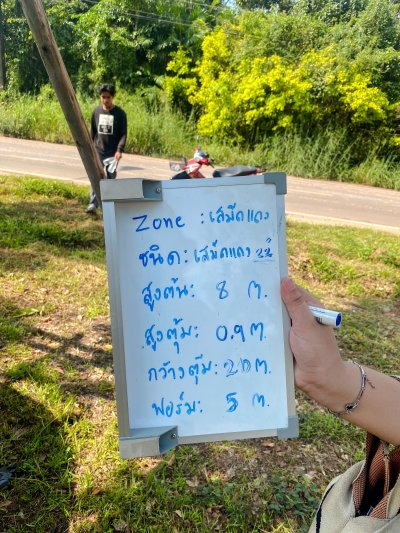 Zone : เสม็ดแดง
ชนิด : เสม็ดแดง 22
สูงต้น : 8 ม.
สูงตุ้ม : 0.9 ม.
กว้างตุ้ม : 20 ม.
ฟอร์ม : 5 ม.